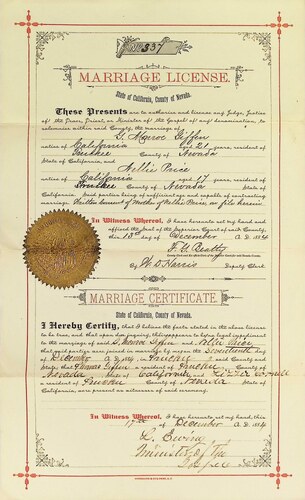 No. 337
MARRIAGE LICENSE.
State of California, County of Nevada.
These Presents are to authorize and license any Judge, Justice
of the Peace, Priest, or Minister of the Gospel of any denomination, to
solemnize within said County, the marriage of
G. Monroe Giffen
native of California aged 21 years, resident of
Truckee County of Nevada
State of California, and
Nellie Paice
native of California aged 17 years, resident of
Truckee County of Nevada
State of California. Said parties being of sufficient age and capable of contracting
marriage. Written Consent of Mother of Nellie Paice on file herein
In Witness Whereof, I have hereunto set my hand and
affixed the Seal of the Superior Court of said County
this 13th day of December A.D. 1894
F. G. Beatty
By W. D. Harris Deputy Clerk.
MARRIAGE CERTIFICATE
State of California, County of Nevada.
I Hereby Certify, that I believe the facts stated in the above license
to be true, and that upon due inquiry, there appears to be no legal impediment
to the marriage of said G. Monroe Giffen and Nellie Paice
that said parties were joined in marriage by me on the Seventeenth day
of December A.D. 1894 in Truckee said County and
State; that Thomas Giffen a resident of Truckee County of
Nevada State of California and
a resident of Truckee County of Nevada State of
California, were present as witnesses of said ceremony.
In Witness Whereof, I have hereunto set my hand, this
17th of December A.D. 1894
L. Ewing
Minister of the
Gospel